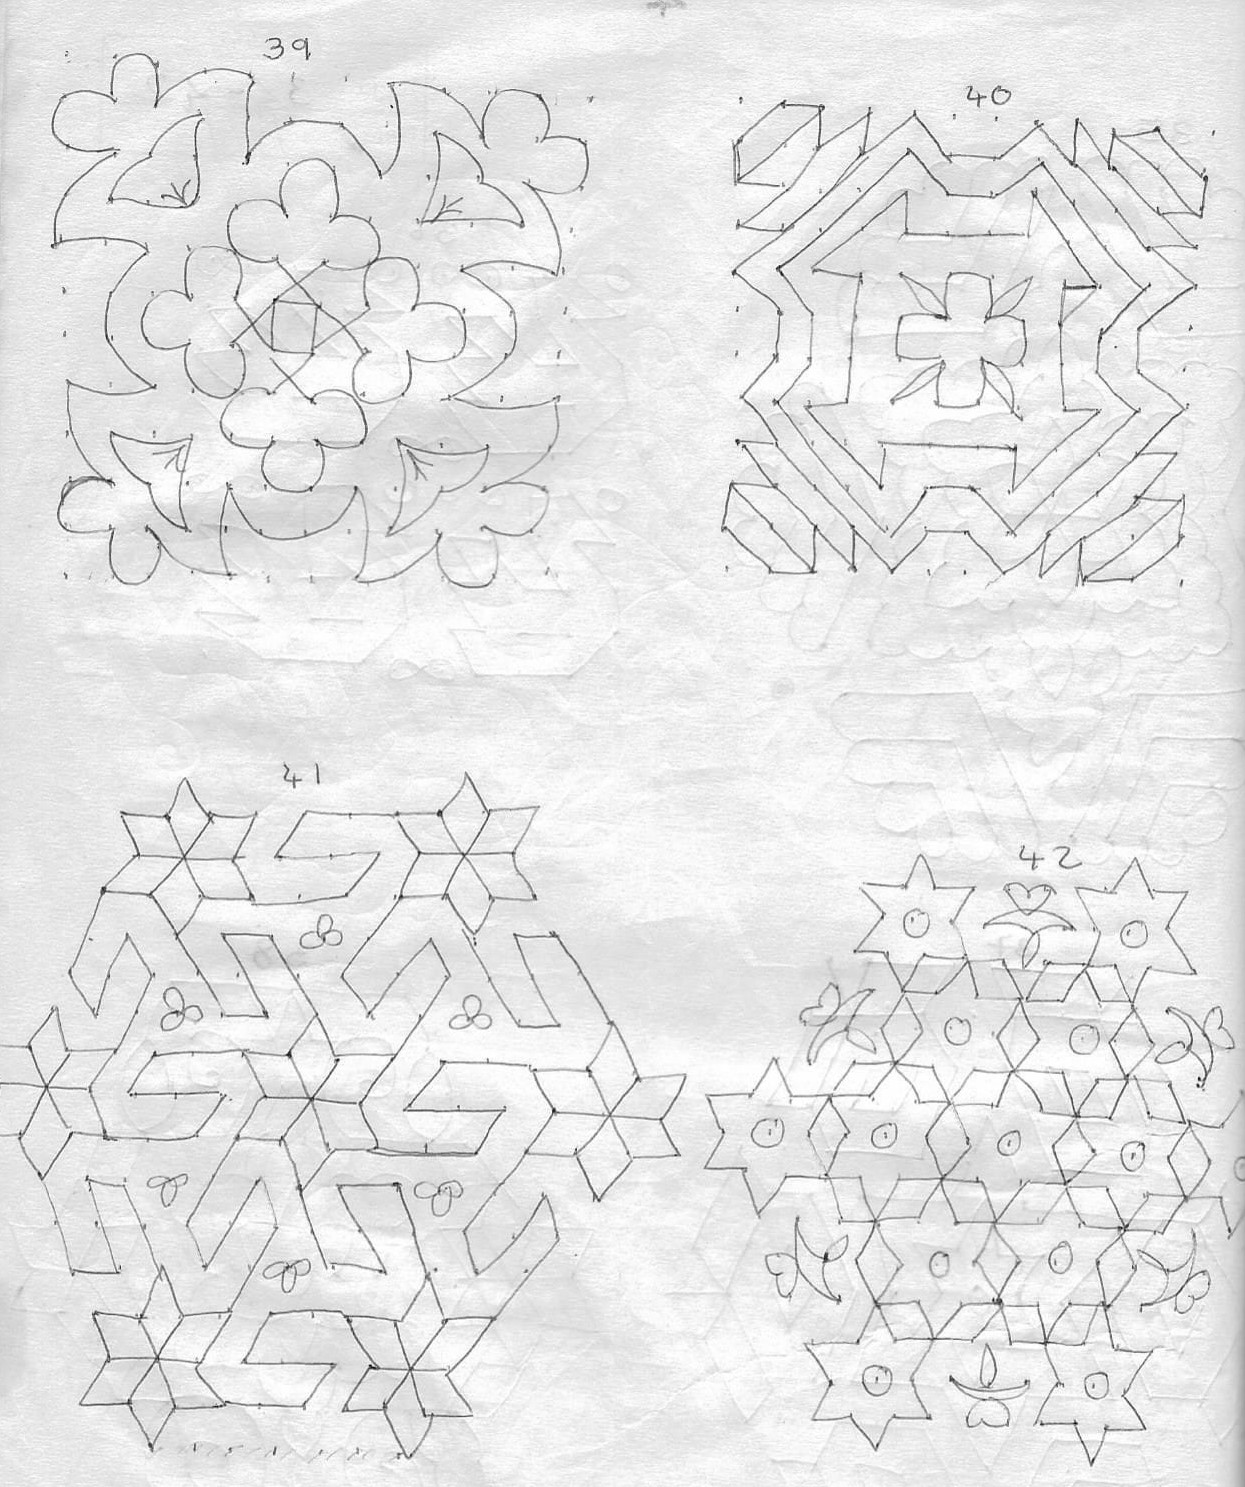 39
40
41
42